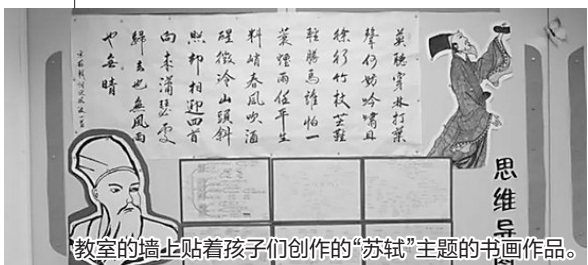 莫聽穿林打葉
聲何妨吟嘯且
徐行竹杖芒鞋
輕勝馬誰怕一
蓑煙雨任平生
料峭春風吹酒
醒微冷山頭斜
照却相迎回首
向来瀟瑟處
歸去也無風雨
也無晴
思维导图
教室的墙上贴着孩子们创作的“苏轼”主题的书画作品。